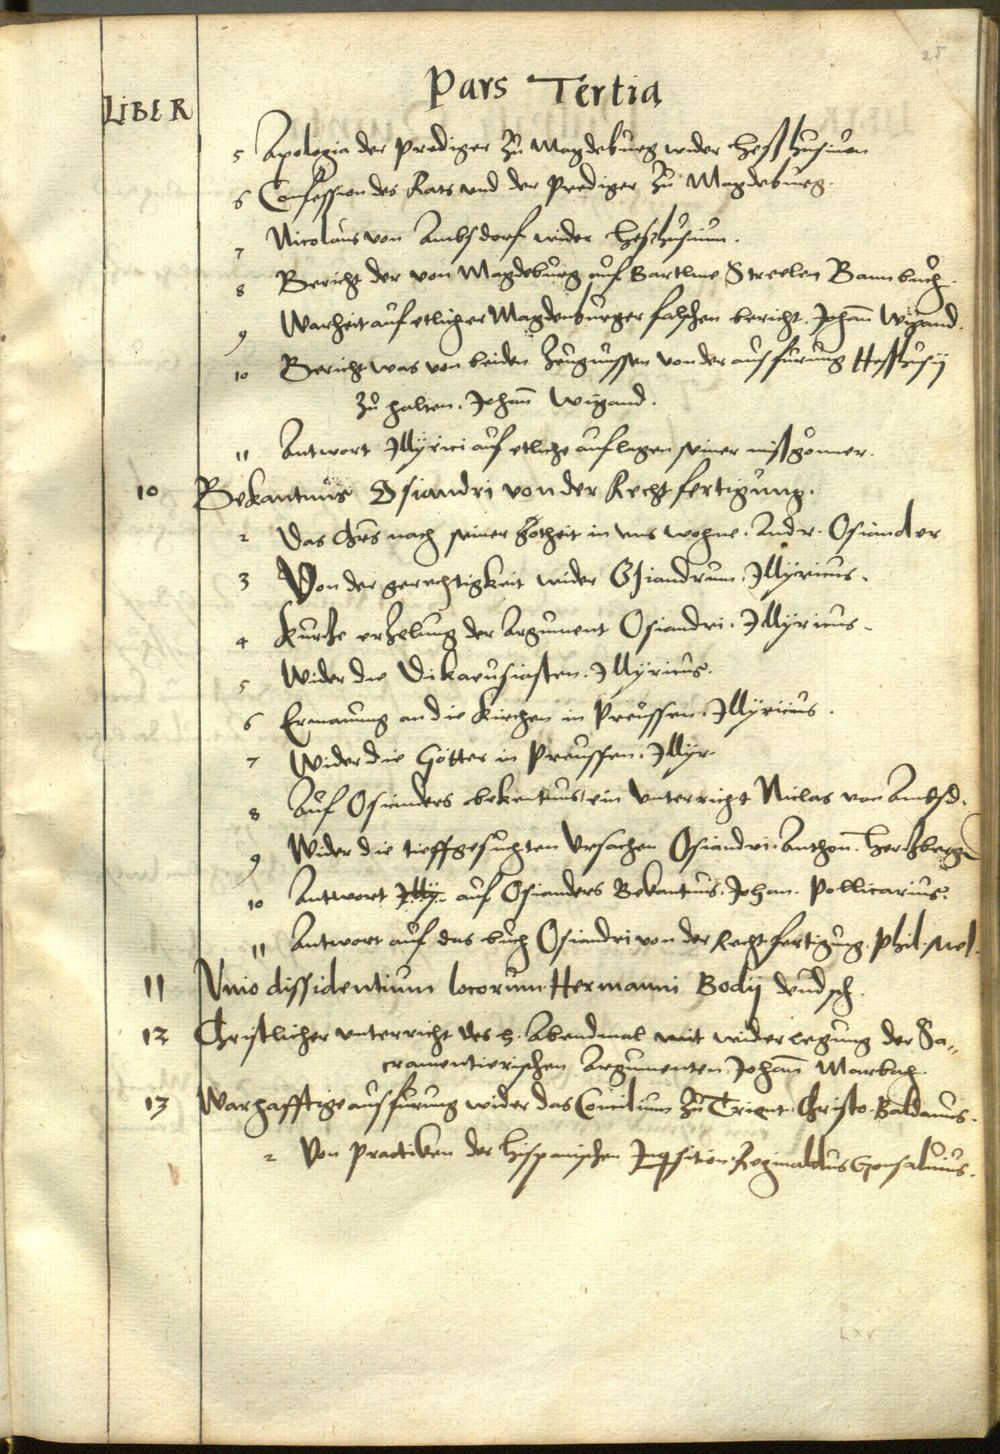 25
Pars Tertia
LIBER
5 Apologia der Prediger zů Magdeburg wider Heßhusium
6 Confession des Rats vnd der Prediger zů Magdeburg.
7 Nicolaus von Ambsdorf wider Heßhusium.
8 Bericht der von Magdeburg auf Bartlme Streelen Bannbůch.
9 Warheit auf etlicher Magdenburger falschen bericht. Johañ Wigand.
10 Bericht was von beiden Zeugnussen von der ausfurung Heßhusij
zů halten. Johañ Wigand.
11 Antwort Illyrici auf etliche auflagen seiner mißgönner.
10 Bekantnus Osiandri von der Rechtfertigung.
2 Das Chrs nach seiner Gotheit in vns wohne. Andr. Osiander
3 Von der gerechtigkeit wider Osiandrum. Illyricus.
4 Kurtze erzelung der Argument Osiandri. Illyricus.
5 Wider die Dikaeusiasten. Illyricus.
6 Ermanung an die Kirchen in Preussen. Illyricus.
7 Wider die Götter in Preussen. Illyr.
8 Auf Osianders bekentnus ein Unterricht Niclas von Ambsd.
9 Wider die tieffgesuchten Ursachen Osiandri. Anthon. Hertzberger
10 Antwort Illy. auf Osianders Bekantnus. Johan. Pollicarius.
11 Antwort auf das buch Osiandri von der Rechtfertigung. Phil. Mel.
11 Vnio dissidentium locorum Hermanni Bodij deudsch.
12 Christlicher vnterricht des h. Abendmal mit widerlegung der Sa„
cramentierischen Argumenten. Johañ Marbach.
13 Warhafftige ausfurung wider das Concilium zů Trient. Christo. Baldauus.
2 Von Practiken der Hispanischen Inqsition. Reginaldus Gonsaluius.
LXV